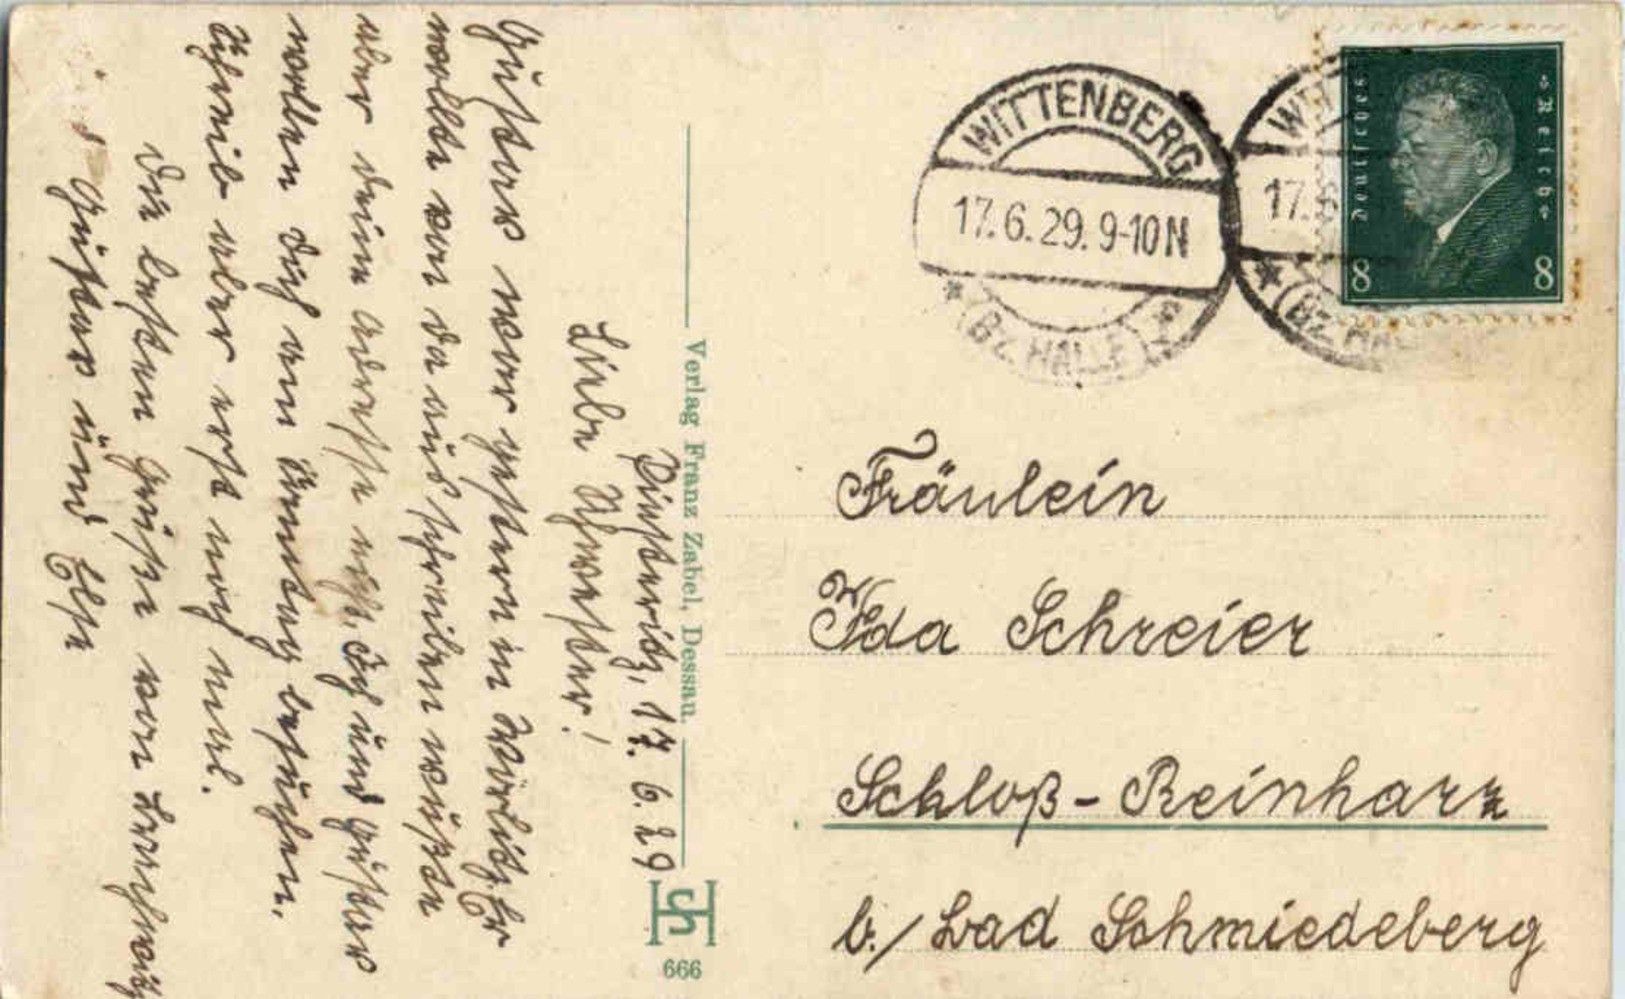 WITTENBERG
17.6.29. 9-10 N
* (Bz. HALLE) *
17.6
(Bz. HA
Deutsches
Reich
8 8
Fräulein
Ida Schreier
Schloß-Reinharz
b./ Bad Schmiedeberg
Verlag Franz Zabel, Dessau.
666
Piesteritz, 17. 6. 29
Liebe Schwester!
Gustav war gestern in Wörlitz, Er
wollte von da aus schreiben wußte
aber deine adresse nicht, Ich und Gustav
wollen dich am Sonntag besuchen.
Schreib aber erst noch mal.
Die besten Grüße von
Gustav und Else